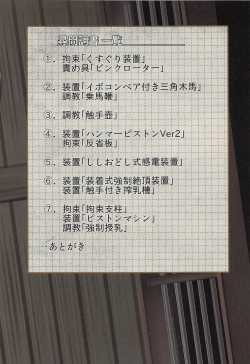 ①．拘束「くすぐり装置」
責め具「ピンクローター」
②．装置「イボコンベア付き三角木馬」
調教「乗馬鞭」
③．調教「触手壺」
④．装置「ハンマーピストンVer2」
拘束「反省板」
⑤．装置「ししおどし式感電装置」
⑥．装置「装着式強制絶頂装置」
装置「触手付き搾乳機」
⑦．拘束「拘束支柱」
装置「ピストンマシン」
調教「強制授乳」
あとがき